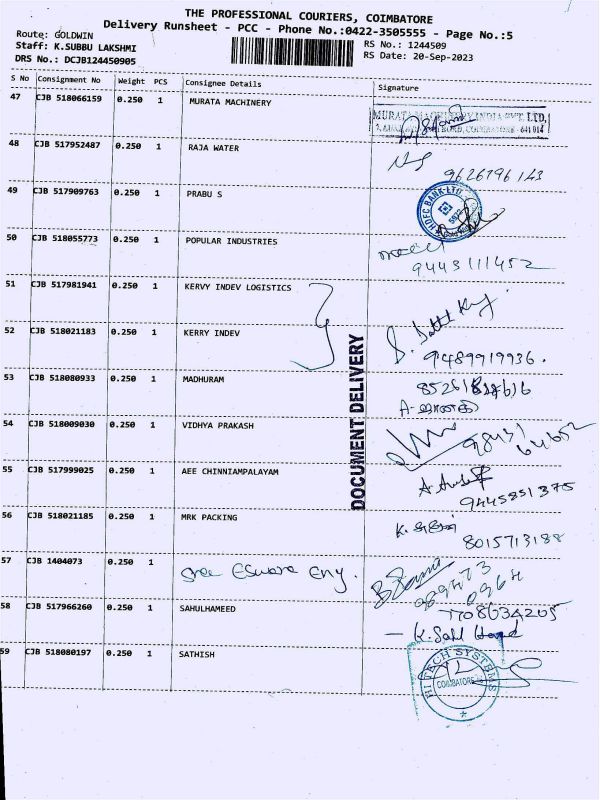 THE PROFESSIONAL COURIERS, COIMBATORE
Delivery Runsheet - PCC - Phone No.:0422-3505555 - Page No.:5
Route: GOLDWIN
RS No.: 1244509
Staff: K.SUBBU LAKSHMI
RS Date: 20-Sep-2023
DRS No.: DCJB124450905
S No Consignment No Weight PCS Consignee Details Signature
47 CJB 518066159 0.250 1 MURATA MACHINERY
MURATA MACHINERY INDIA PVT. LTD.
COIMBATORE - 641 014
48 CJB 517952487 0.250 1 RAJA WATER
9626796143
49 CJB 517909763 0.250 1 PRABU S
HDFC BANK LTD
50 CJB 518055773 0.250 1 POPULAR INDUSTRIES
9443111452
51 CJB 517981941 0.250 1 KERVY INDEV LOGISTICS
52 CJB 518021183 0.250 1 KERRY INDEV
9489919936.
DOCUMENT DELIVERY
53 CJB 518080933 0.250 1 MADHURAM
54 CJB 518009030 0.250 1 VIDHYA PRAKASH
55 CJB 517999025 0.250 1 AEE CHINNIAMPALAYAM
9445851375
56 CJB 518021185 0.250 1 MRK PACKING
8015713188
57 CJB 1404073 0.250 1 Sree Eswara Eng.
58 CJB 517966260 0.250 1 SAHULHAMEED
7708634205
59 CJB 518080197 0.250 1 SATHISH
HI TECH SYSTEMS
COIMBATORE